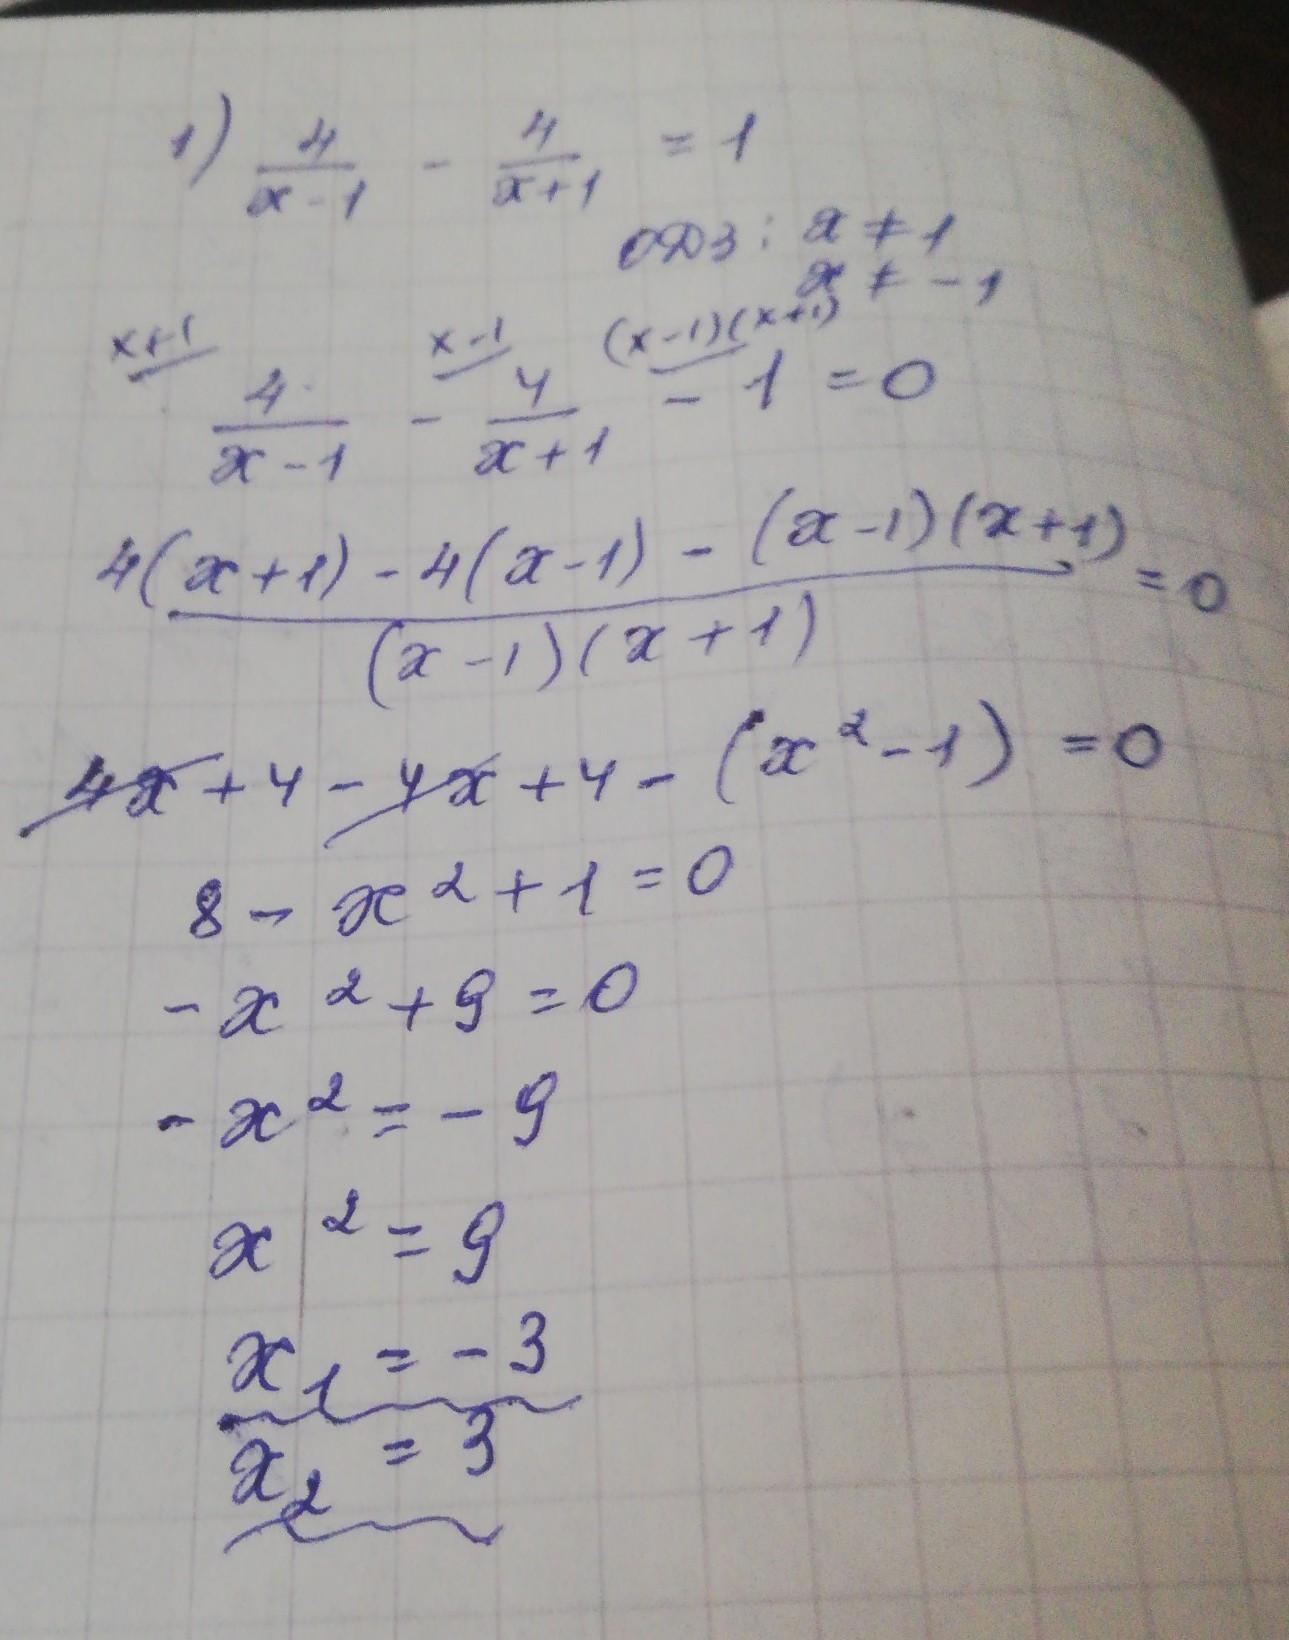 1) 4/(x-1) - 4/(x+1) = 1
ОДЗ: x ≠ 1
x ≠ -1
x+1 x-1 (x-1)(x+1)
4/(x-1) - 4/(x+1) - 1 = 0
(4(x+1) - 4(x-1) - (x-1)(x+1))/((x-1)(x+1)) = 0
4x + 4 - 4x + 4 - (x² - 1) = 0
8 - x² + 1 = 0
- x² + 9 = 0
- x² = - 9
x² = 9
x₁ = - 3
x₂ = 3